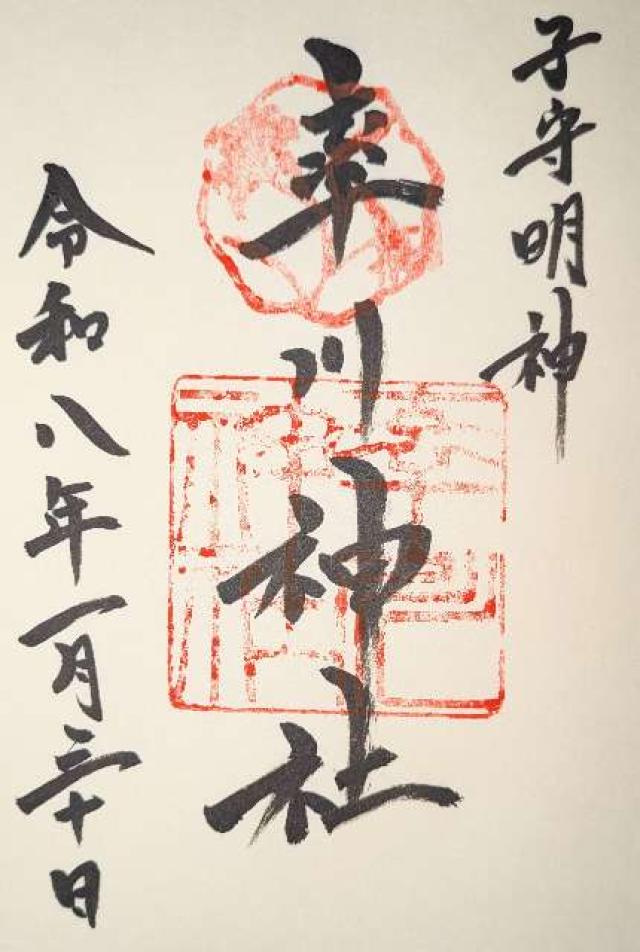 子守明神
率川神社
令和八年一月三十日